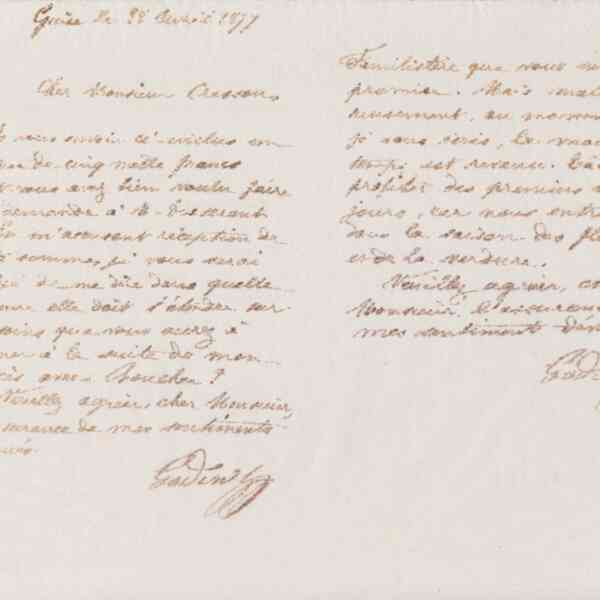 Guise le 28 Avril 1877
Cher Monsieur Cresson,
vous envoie ci-inclus un
de cinq mille francs
vous avez bien voulu faire
demande à M.
m'accusant réception de
somme, je vous serai
de me dire dans quelle
elle doit s'étendre sur
soins que vous aurez à
à la suite de mon
avec Boucher ?
Veuillez agréer, cher Monsieur,
surance de mes sentiments
Godin
Familistère que vous
premier. Mais mal
reusement, au moment
je vous écris, le
temps est revenu.
profiter des premiers
jours, car nous
dans la saison des
et de la verdure.
Veuillez agréer,
Monsieur, l'assuran
mes sentiments
Godin